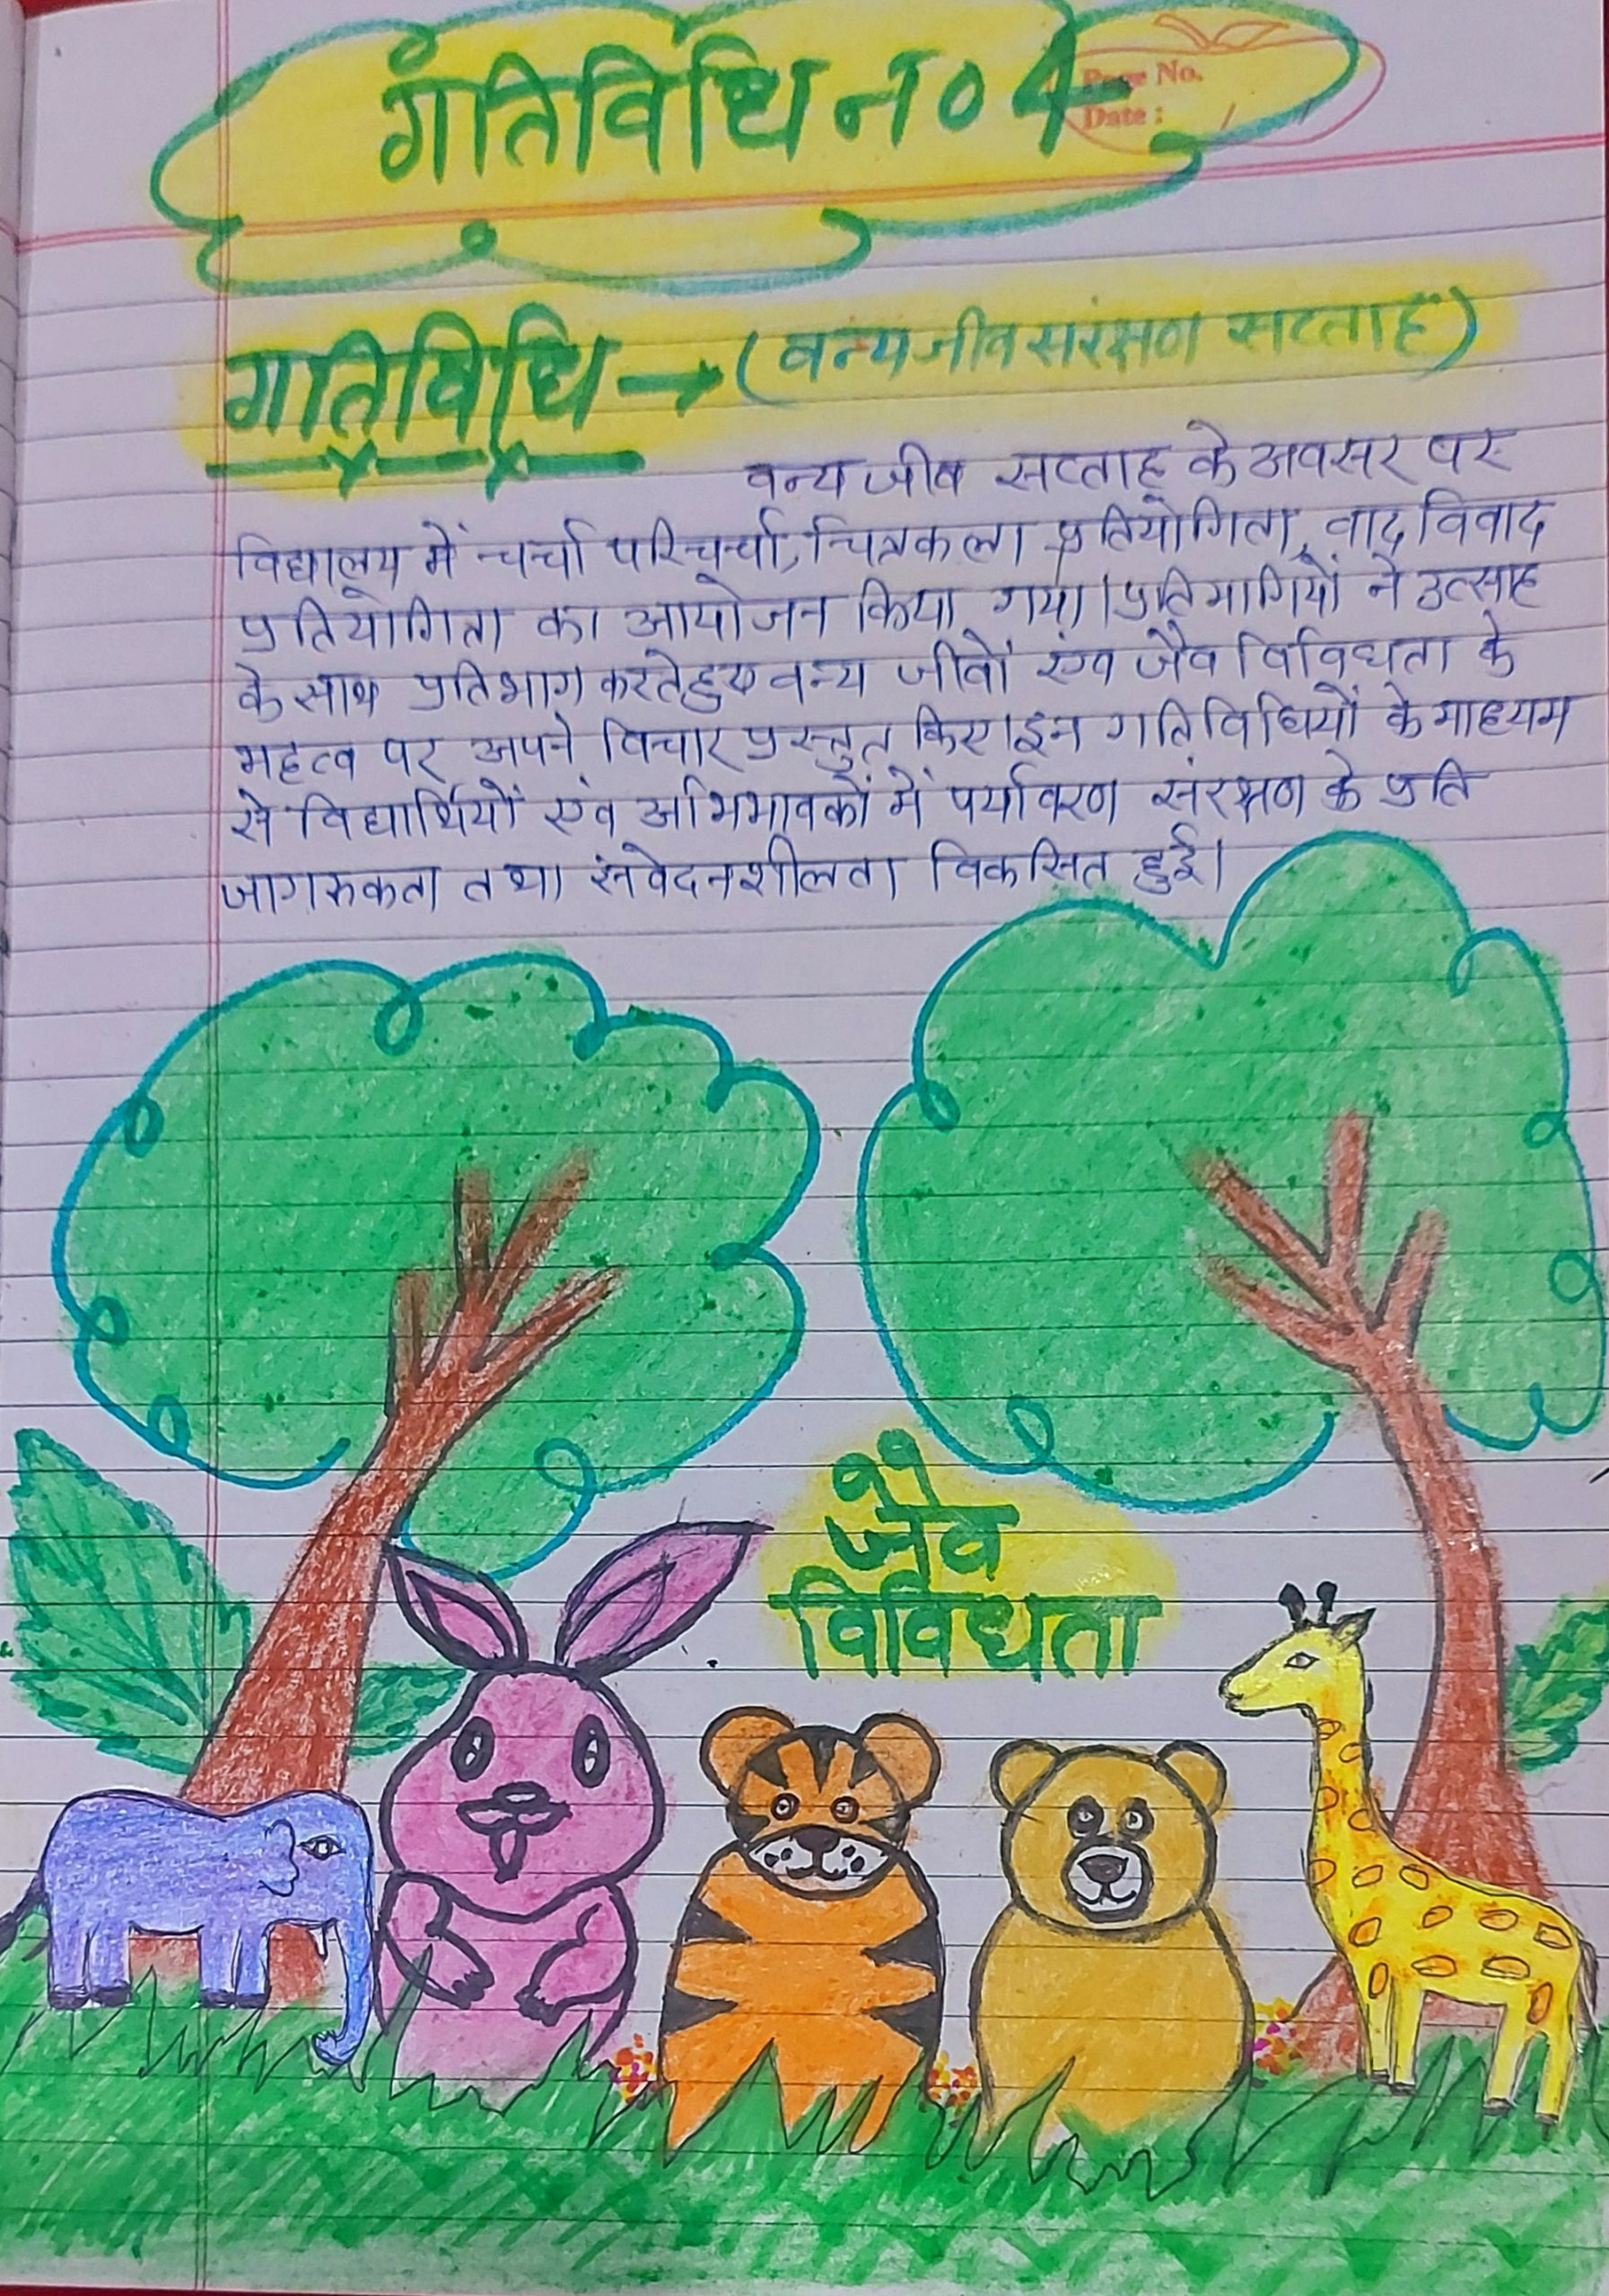 गतिविधि न0 4
Page No.
Date :
गतिविधि → (वन्यजीव सरंक्षण सप्ताह)
वन्य जीव सप्ताह के अवसर पर
विद्यालय में चर्चा परिचर्चा, चित्रकला प्रतियोगिता, वाद विवाद
प्रतियोगिता का आयोजन किया गया। प्रतिभागियों ने उत्साह
के साथ प्रतिभाग करतेहुए वन्य जीवों एंव जैव विविधता के
महत्व पर अपने विचार प्रस्तुत किए। इन गतिविधियों के माध्यम
से विद्यार्थियों एंव अभिभावकों में पर्यावरण संरक्षण के प्रति
जागरुकता तथा संवेदनशीलता विकसित हुई।
जैव
विविधता